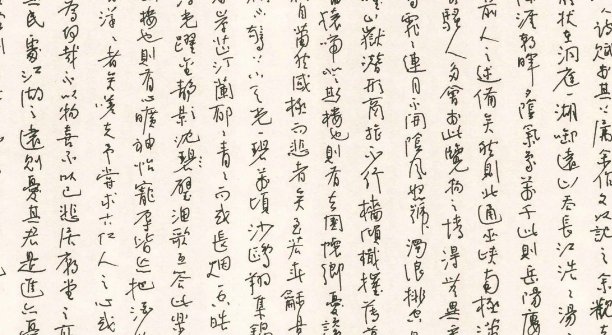 詩賦於其上屬予作文以記之予觀
勝狀在洞庭一湖銜遠山吞長江浩浩湯
際涯朝暉夕陰氣象萬千此則岳陽樓
前人之述備矣然則北通巫峽南極瀟
騷人多會於此覽物之情得無異
霏霏連月不開陰風怒號濁浪排空日
山嶽潛形商旅不行檣傾楫摧薄暮
嘯猿啼登斯樓也則有去國懷鄉憂讒
目蕭然感極而悲者矣至若春和景
不驚上下天光一碧萬頃沙鷗翔集錦
岸芷汀蘭郁郁青青而或長烟一空皓
浮光躍金靜影沈碧璧漁歌互答此樂
樓也則有心曠神怡寵辱皆忘把酒
洋洋者矣嗟夫予嘗求古仁人之心或
為何哉不以物喜不以己悲居廟堂之高
民處江湖之遠則憂其君是進亦憂